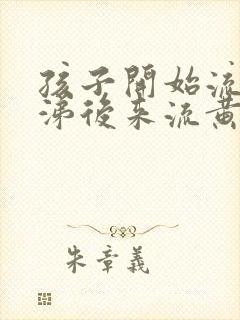 孩子開始流
涕後來流黃
朱章義